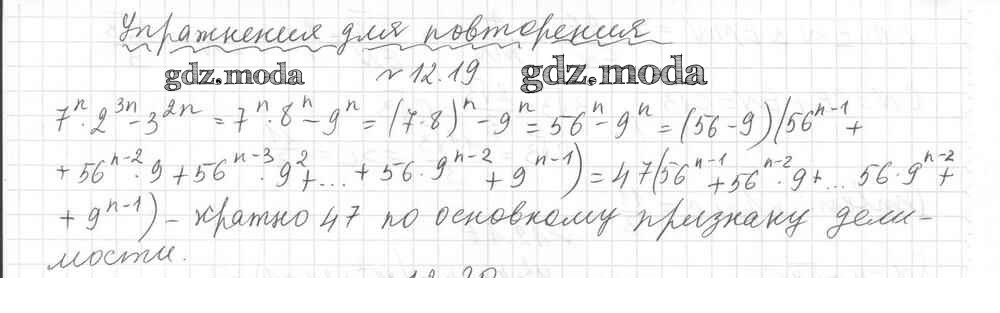 Упражнения для повторения
gdz.moda № 12.19 gdz.moda
7ⁿ · 2³ⁿ - 3²ⁿ = 7ⁿ · 8ⁿ - 9ⁿ = (7·8)ⁿ - 9ⁿ = 56ⁿ - 9ⁿ = (56-9)(56ⁿ⁻¹ +
+ 56ⁿ⁻² · 9 + 56ⁿ⁻³ · 9² + ... + 56 · 9ⁿ⁻² + 9ⁿ⁻¹) = 47(56ⁿ⁻¹ + 56ⁿ⁻² · 9 + ... 56 · 9ⁿ⁻² +
+ 9ⁿ⁻¹) - кратно 47 по основному признаку дели-
мости.